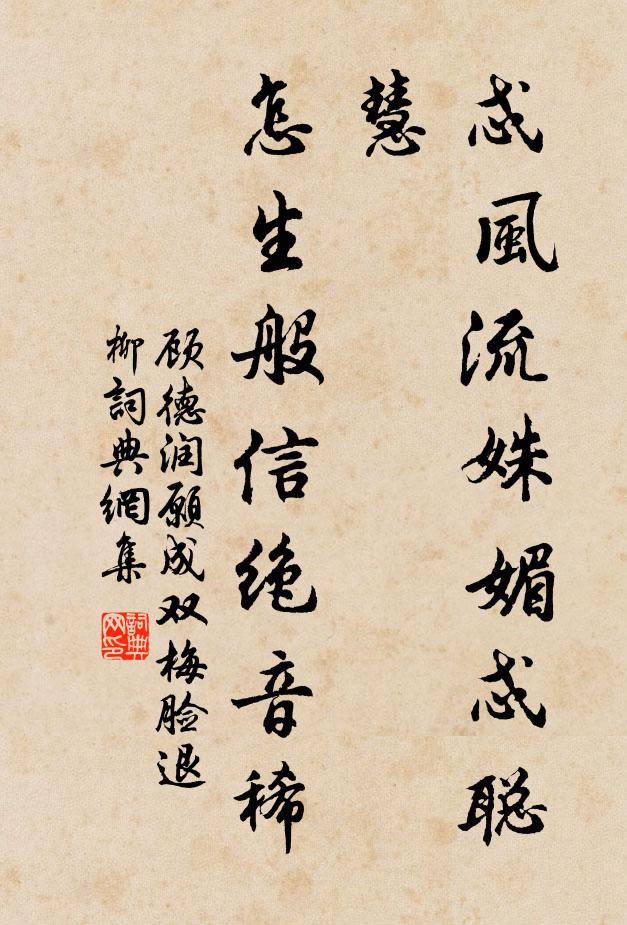 忒風流姝媚忒聪
慧
怎生般信绝音稀
顾德润願成双梅脸退
柳詞典網集
詞典
网印